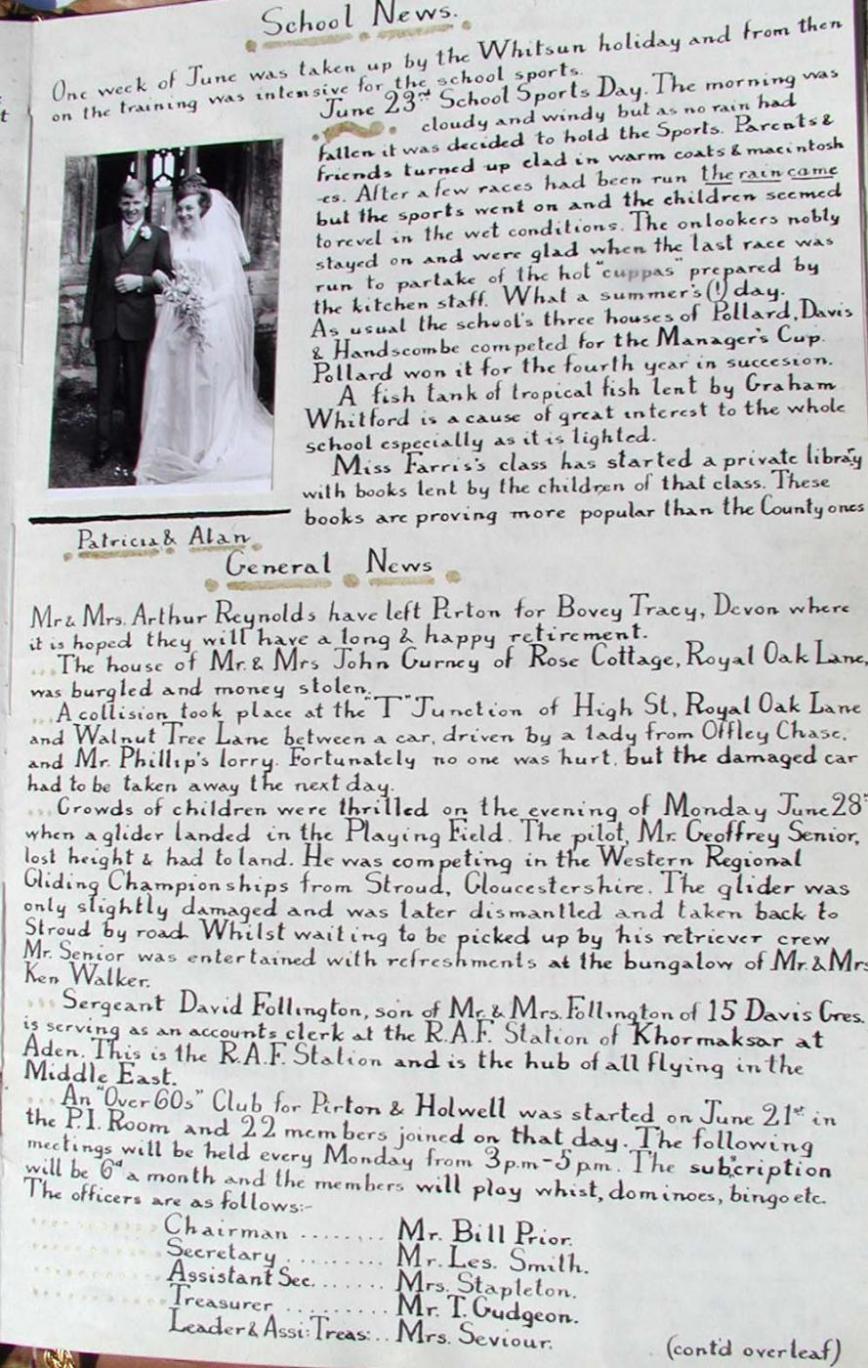 School News.
One week of June was taken up by the Whitsun holiday and from then
on the training was intensive for the school sports.
June 23rd School Sports Day. The morning was
cloudy and windy but as no rain had
fallen it was decided to hold the Sports. Parents &
friends turned up clad in warm coats & macintosh
-es. After a few races had been run the rain came
but the sports went on and the children seemed
to revel in the wet conditions. The onlookers nobly
stayed on and were glad when the last race was
run to partake of the hot "cuppas" prepared by
the kitchen staff. What a summer's (!) day.
As usual the school's three houses of Pollard, Davis
& Handscombe competed for the Manager's Cup.
Pollard won it for the fourth year in succesion.
A fish tank of tropical fish lent by Graham
Whitford is a cause of great interest to the whole
school especially as it is lighted.
Miss Farris's class has started a private library
with books lent by the children of that class. These
books are proving more popular than the County ones
Patricia & Alan.
General News
Mr & Mrs. Arthur Reynolds have left Pirton for Bovey Tracy, Devon where
it is hoped they will have a long & happy retirement.
...The house of Mr. & Mrs John Gurney of Rose Cottage, Royal Oak Lane,
was burgled and money stolen.
...A collision took place at the "T" Junction of High St, Royal Oak Lane
and Walnut Tree Lane between a car, driven by a lady from Offley Chase,
and Mr. Phillip's lorry. Fortunately no one was hurt, but the damaged car
had to be taken away the next day.
...Crowds of children were thrilled on the evening of Monday June 28th
when a glider landed in the Playing Field. The pilot, Mr. Geoffrey Senior,
lost height & had to land. He was competing in the Western Regional
Gliding Championships from Stroud, Gloucestershire. The glider was
only slightly damaged and was later dismantled and taken back to
Stroud by road. Whilst waiting to be picked up by his retriever crew
Mr. Senior was entertained with refreshments at the bungalow of Mr. & Mrs
Ken Walker.
...Sergeant David Follington, son of Mr. & Mrs. Follington of 15 Davis Cres.
is serving as an accounts clerk at the R.A.F. Station of Khormaksar at
Aden. This is the R.A.F. Station and is the hub of all flying in the
Middle East.
...An "Over 60s" Club for Pirton & Holwell was started on June 21st in
the P.I. Room and 22 members joined on that day. The following
meetings will be held every Monday from 3p.m-5pm. The subcription
will be 6d a month and the members will play whist, dominoes, bingo etc.
The officers are as follows:-
Chairman ........ Mr. Bill Prior.
Secretary ......... Mr. Les. Smith.
Assistant Sec....... Mrs. Stapleton.
Treasurer ......... Mr. T. Gudgeon.
Leader & Assi: Treas:.. Mrs. Seviour.
(cont'd overleaf)